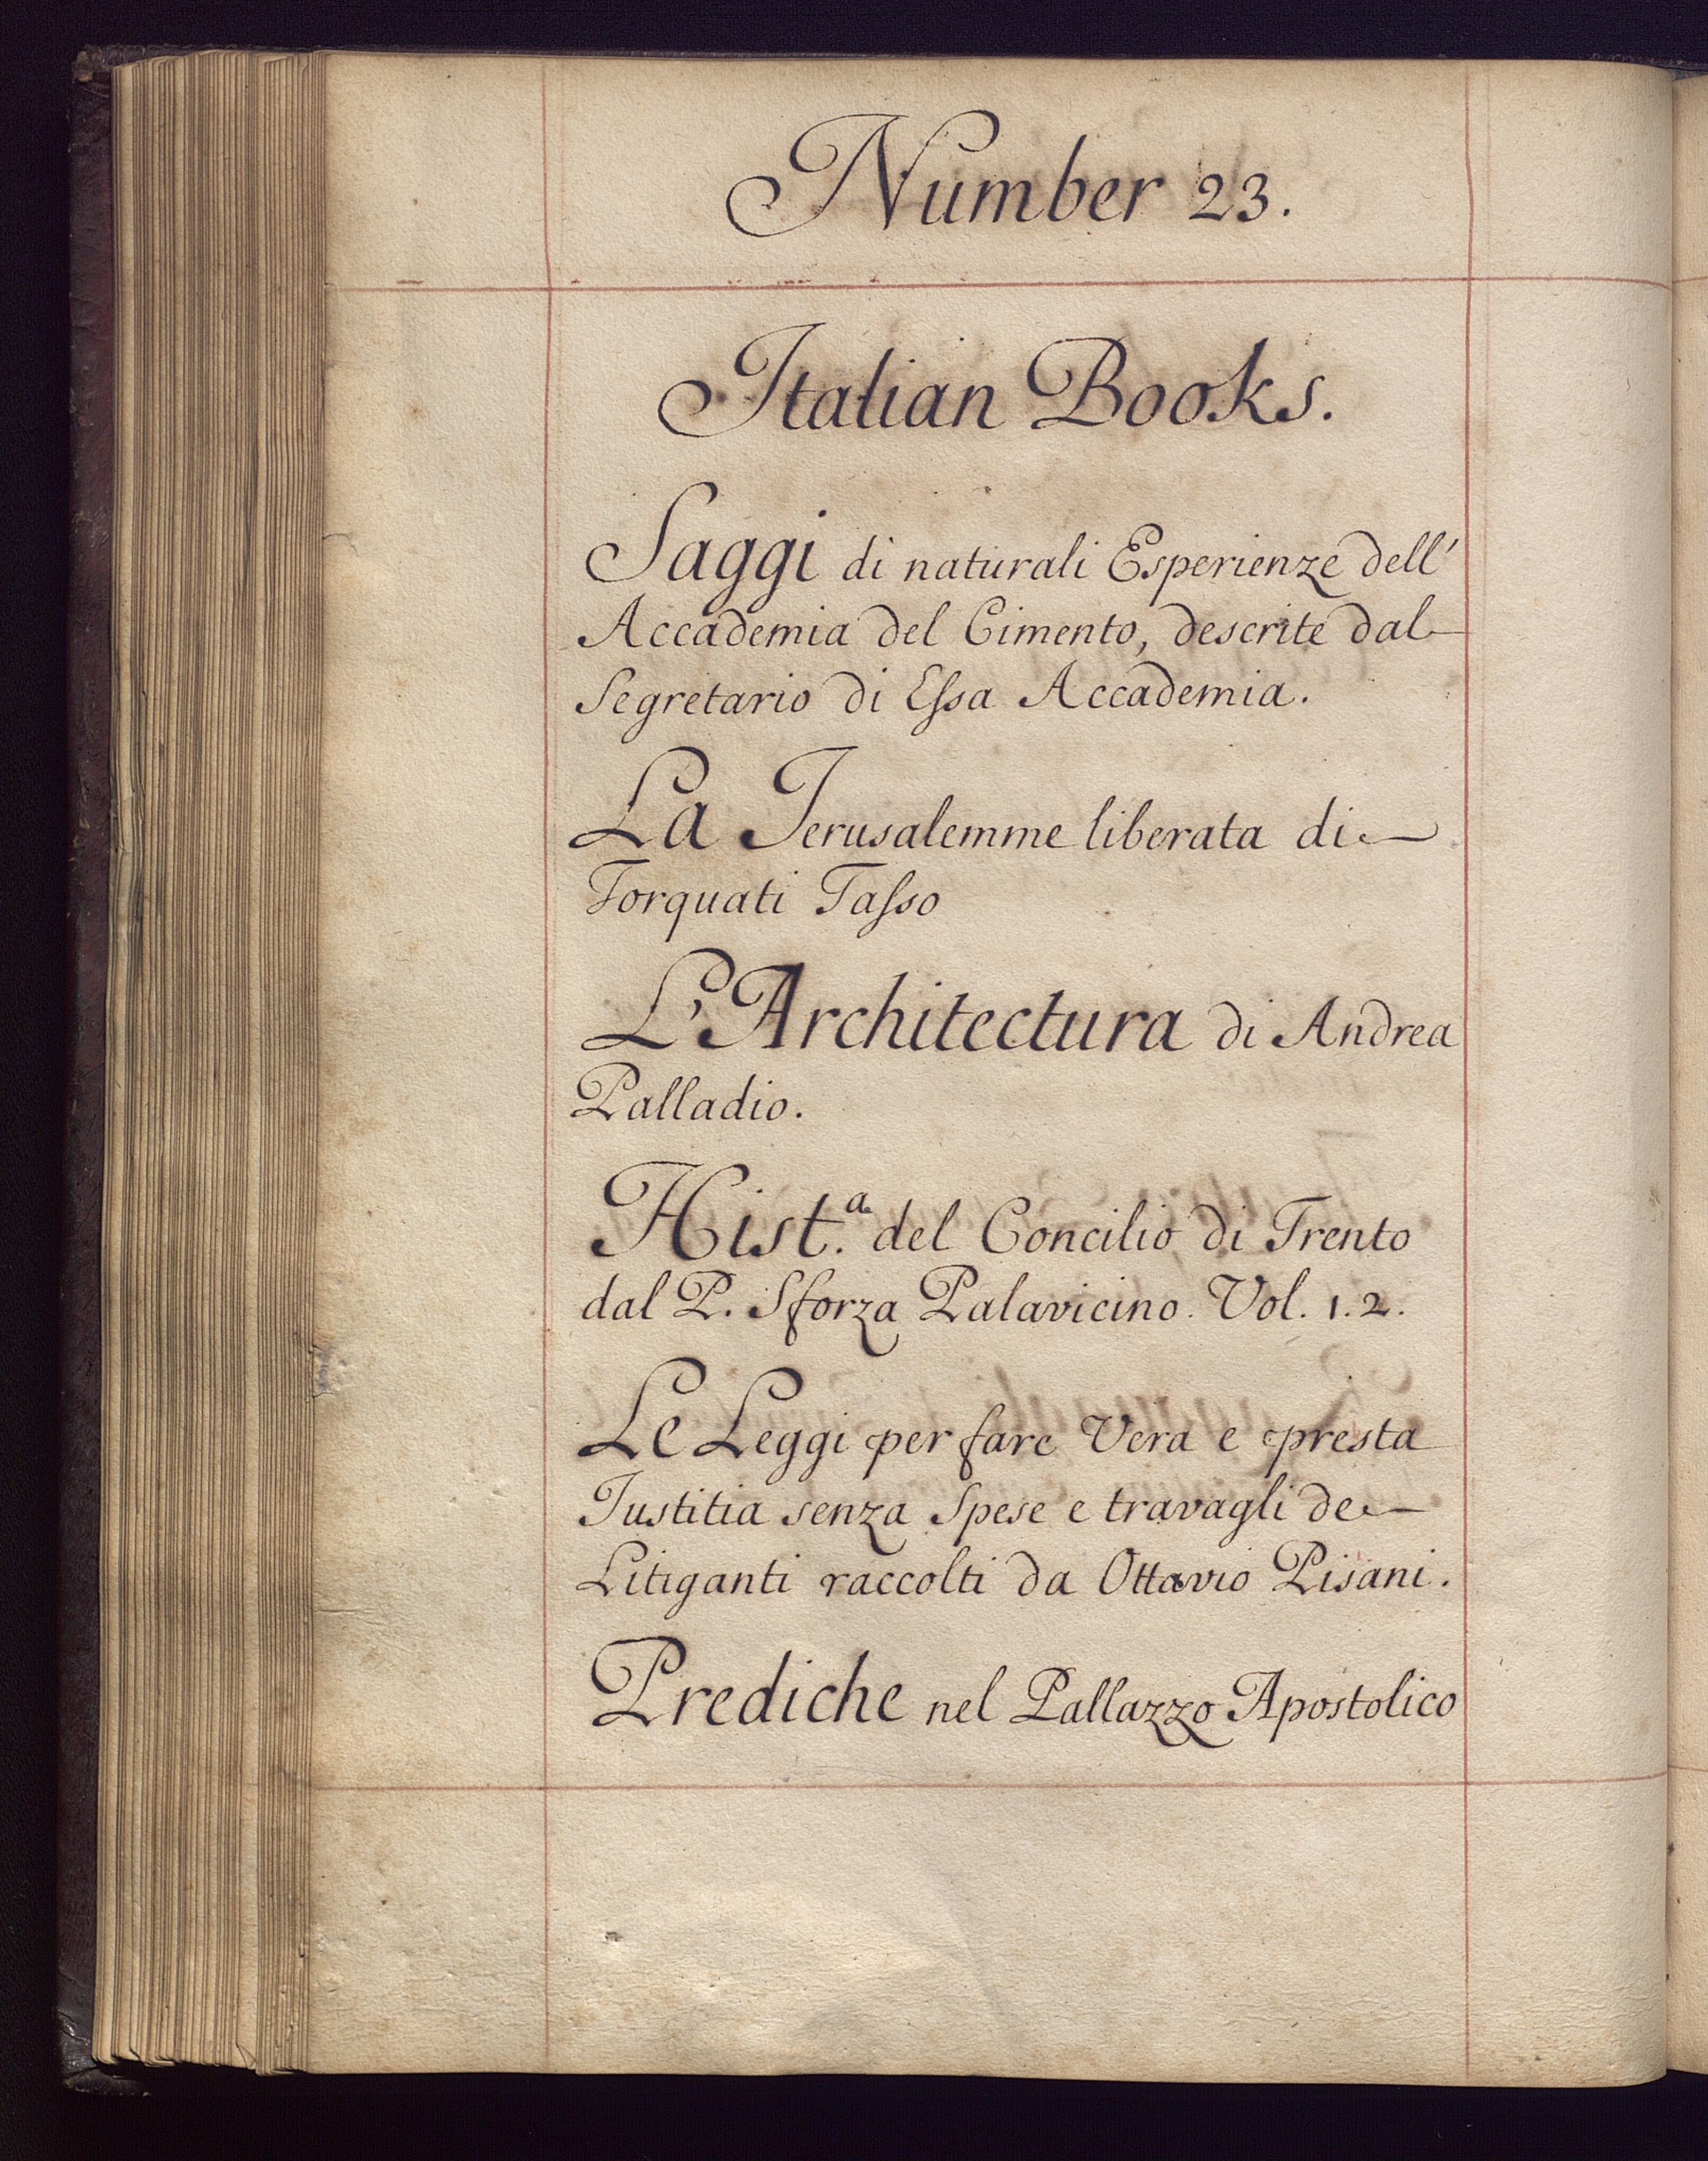 Number 23.
Italian Books.
Saggi di naturali Esperienze dell'
Accademia del Cimento, descrite dal
Segretario di Eſsa Accademia.
La Jerusalemme liberata di
Torquati Taſso
L'Architectura di Andrea
Palladio.
Hist.ᵃ del Concilio di Trento
dal P. Sforza Palavicino. Vol. 1.2.
Le Leggi per fare Vera e presta
Justitia senza Spese e travagli de
Litiganti raccolti da Ottavio Pisani.
Prediche nel Pallazzo Apostolico